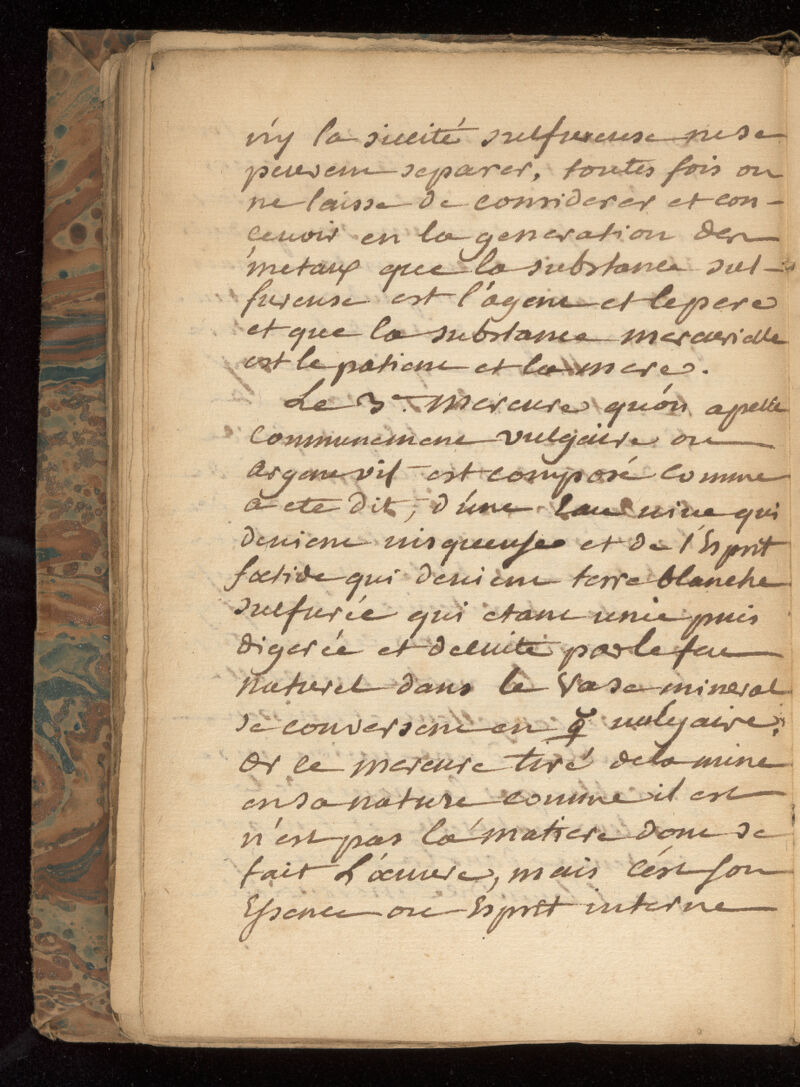 n'y la siccité sulfureuse ne se
peuvent separer, toutes fois on
ne laisse de considerer et con-
cevoir en la generation des
metaux que la substance sul-
fureuse est l'agent et le pere
et que la substance mercurielle
est le patient et la mere.
Le 3e. Mercure qu'on apelle
communement vulgaire ou
argent vif est composé comme
a eté dit, d'une Eau vive qui
devient visqueuse et de l'Esprit
foetide qui devient terre blanche
sulfurée qui etant unie puis
digerée et decuite par le feu
naturel dans le Vase mineral
se convertent en ☿ vulgaire.
Or ce mercure tiré de la mine
en sa nature comme il est
n'est pas la matiere dont se
fait L'œuvre, mais c'est son
Essence ou Esprit interne